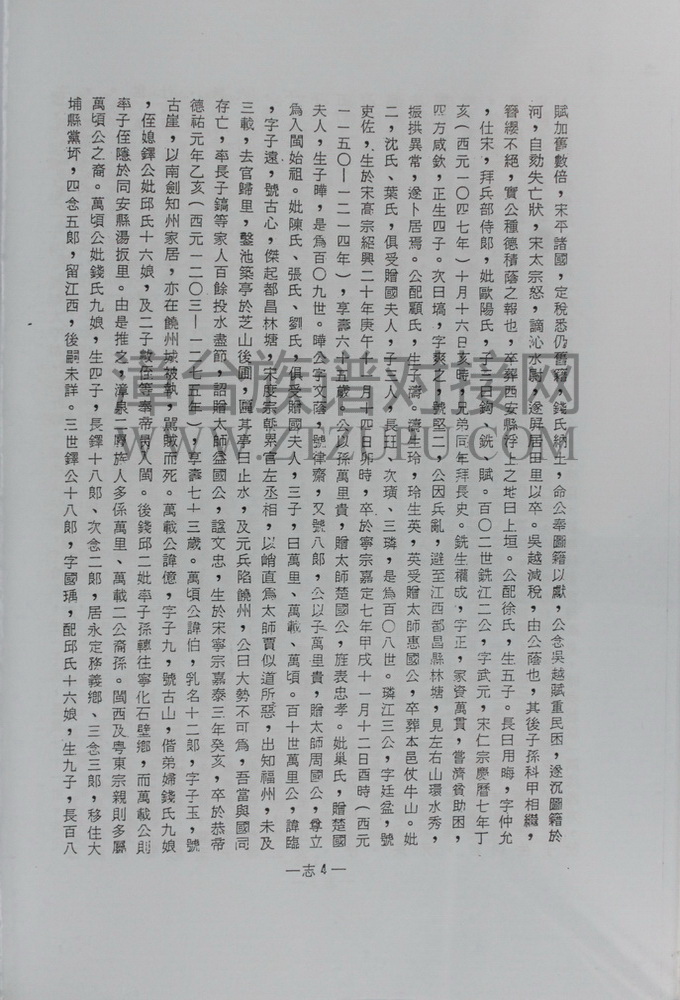 賦加舊數倍，宋平諸國，定稅悉仍舊籍，錢氏納土，命公奉圖籍以獻，公念吳越賦重民困，遂沉圖籍於
河，自劾失亡狀，宋太宗怒，謫沁水尉，遂屏居田里以卒。吳越減稅，由公蔭也，其後子孫科甲相繼，
簪纓不絕，實公種德積蔭之報也，卒葬西安縣浮上之地曰上垣。公配徐氏，生五子。長曰用晦，字仲允
，仕宋，拜兵部侍郎，妣歐陽氏，子三曰鈎、銑、賦。百〇二世銑江二公，字武元，宋仁宗慶曆七年丁
亥（西元一〇四七年）十月十六日亥時，兄弟同年拜長史。銑生權成，字正，家資萬貫，嘗濟貧助困，
四方咸欽，正生四子。次曰塙，字爽之，號堅二，公因兵亂，避至江西都昌縣林塘，見左右山環水秀，
振拱異常，遂卜居焉。公配顧氏，生子濤。濤生玲，玲生英，英受贈太師惠國公，卒葬本邑仗牛山。妣
二，沈氏、葉氏，俱受贈國夫人，子三人，長玨、次璜、三璘，是為百〇八世。璘江三公，字廷盆，號
吏佐，生於宋高宗紹興二十年庚午十一月十四日卯時，卒於寧宗嘉定七年甲戌十一月十二日酉時（西元
一一五〇—一二一四年），享壽六十五歲。公以孫萬里貴，贈太師楚國公，旌表忠孝。妣巢氏，贈楚國
夫人，生子曄，是為百〇九世。曄公字文蔭，號律齋，又號八郞，公以子萬里貴，贈太師周國公，尊立
為入閩始祖。妣陳氏、張氏、劉氏，俱受贈國夫人，三子，曰萬里、萬載、萬頃。百十世萬里公，諱臨
，字子遠，號古心，傑起都昌林塘，宋度宗朝累官左丞相，以峭直為太師賈似道所惡，出知福州，未及
三載，去官歸里，鑿池築亭於芝山後圃，匾其亭曰止水，及元兵陷饒州，公曰大勢不可為，吾當與國同
存亡，率長子鎬等家人百餘投水盡節，詔贈太師益國公，諡文忠，生於宋寧宗嘉泰三年癸亥，卒於恭帝
德祐元年乙亥（西元一二〇三—一二七五年），享壽七十三歲。萬頃公諱伯，乳名十二郞，字子玉，號
古崖，以南劍知州家居，亦在饒州城被執，罵賊而死。萬載公諱億，字子九，號古山，偕弟婦錢氏九娘
，侄媳鐸公妣邱氏十六娘，及二子敳侄等奉帝昺入閩。後錢邱二妣率子孫轉往寧化石壁鄉，而萬載公則
率子侄隱於同安縣湯坂里。由是推之，漳泉二縣族人多係萬里、萬載二公裔孫。閩西及粵東宗親則多屬
萬頃公之裔。萬頃公妣錢氏九娘，生四子，長鐸十八郞、次念二郞，居永定務義鄉、三念三郞，移住大
埔縣黨坪，四念五郞，留江西，後嗣未詳。三世鐸公十八郞，字國瑀，配邱氏十六娘，生九子，長百八
—志4—
漳台族谱对接网
WWW.ZTZUPU.COM